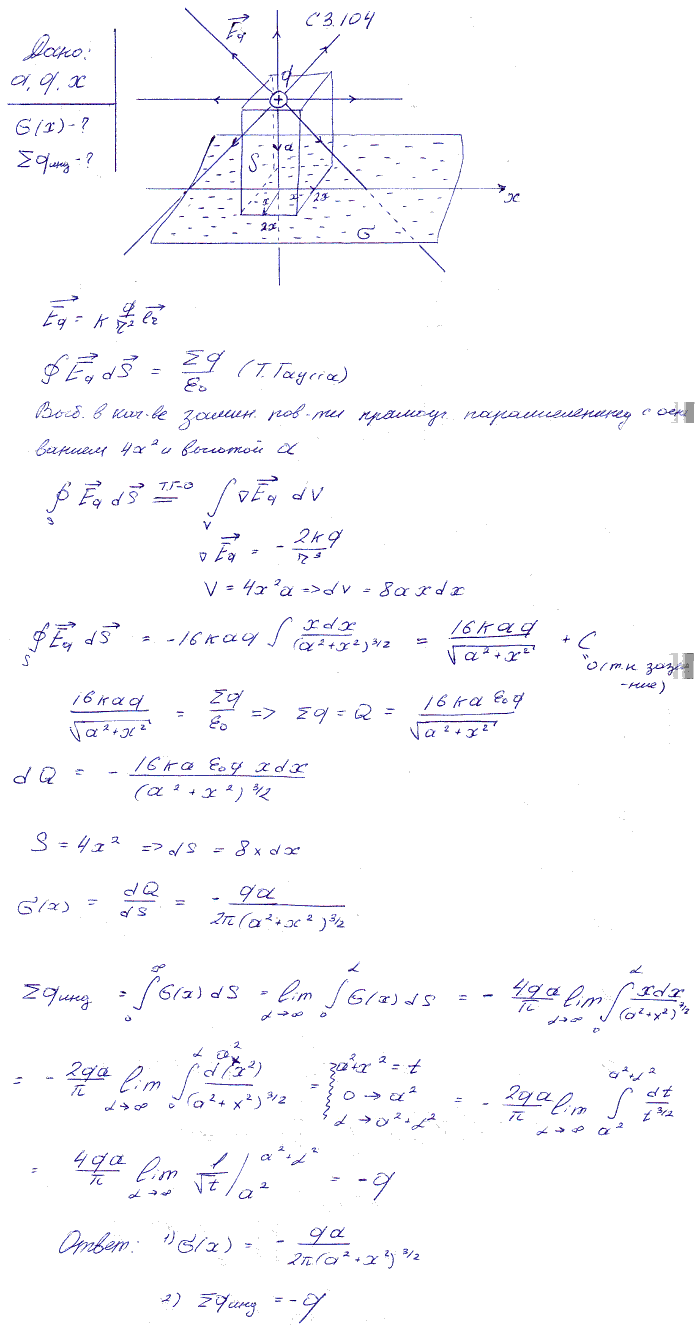 С 3.104
Дано:
a, q, x
σ(x) - ?
Σq инд - ?
E⃗q
q
a
S
x
x
2x
2x
σ
x
E⃗q = k q/r² e⃗r
∮ E⃗q dS⃗ = Σq/ε₀ (Т. Гаусса)
Выб. в кач-ве замкн. пов-ти прямоуг. параллелепипед с осно
ванием 4x² и высотой a
∮_S E⃗q dS⃗ =^{Т.Г-О} ∫_V ∇E⃗q dV
∇E⃗q = - 2kq/r³
V = 4x²a => dV = 8a x dx
∮_S E⃗q dS⃗ = -16kaq ∫ xdx/(a²+x²)^{3/2} = 16kaq/√(a²+x²) + C
0 (т.к зазем
-ние)
16kaq/√(a²+x²) = Σq/ε₀ => Σq = Q = 16ka ε₀q/√(a²+x²)
dQ = - 16ka ε₀q xdx/(a²+x²)^{3/2}
S = 4x² => dS = 8xdx
σ(x) = dQ/dS = - qa/2π(a²+x²)^{3/2}
Σq инд = ∫_0^∞ σ(x) dS = lim_{L→∞} ∫_0^L σ(x) dS = - 4qa/π lim_{L→∞} ∫_0^L xdx/(a²+x²)^{3/2}
= - 2qa/π lim_{L→∞} ∫_0^L d(x²)/(a²+x²)^{3/2} = { a²+x² = t
0 → a²
L → a²+L²
= - 2qa/π lim_{L→∞} ∫_{a²}^{a²+L²} dt/t^{3/2}
= 4qa/π lim_{L→∞} 1/√t |_{a²}^{a²+L²} = -q
Ответ: 1) σ(x) = - qa/2π(a²+x²)^{3/2}
2) Σq инд = -q